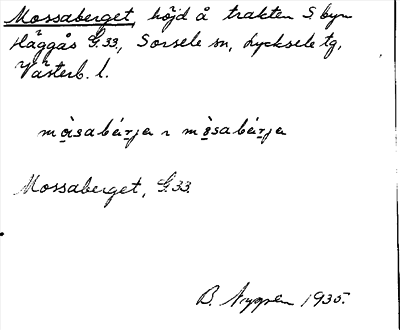 Mossaberget, höjd å trakten S byn
Häggås G.33, Sorsele sn, Lycksele tg,
Västerb. l.
mo̱i̯sabǽrja ~ mo̱sabǽrja
Mossaberget, G.33.
B. 1935.